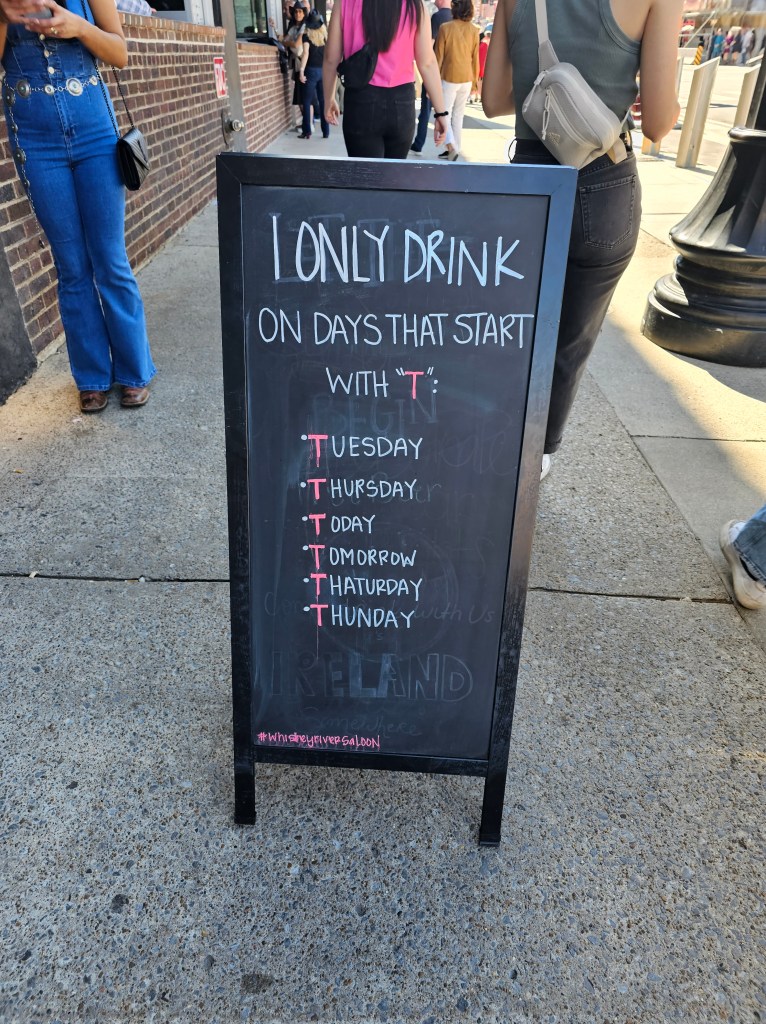 I ONLY DRINK
ON DAYS THAT START
WITH "T":
• TUESDAY
• THURSDAY
• TODAY
• TOMORROW
• THATURDAY
• THUNDAY
IRELAND
#WHISKEYRIVERSALOON